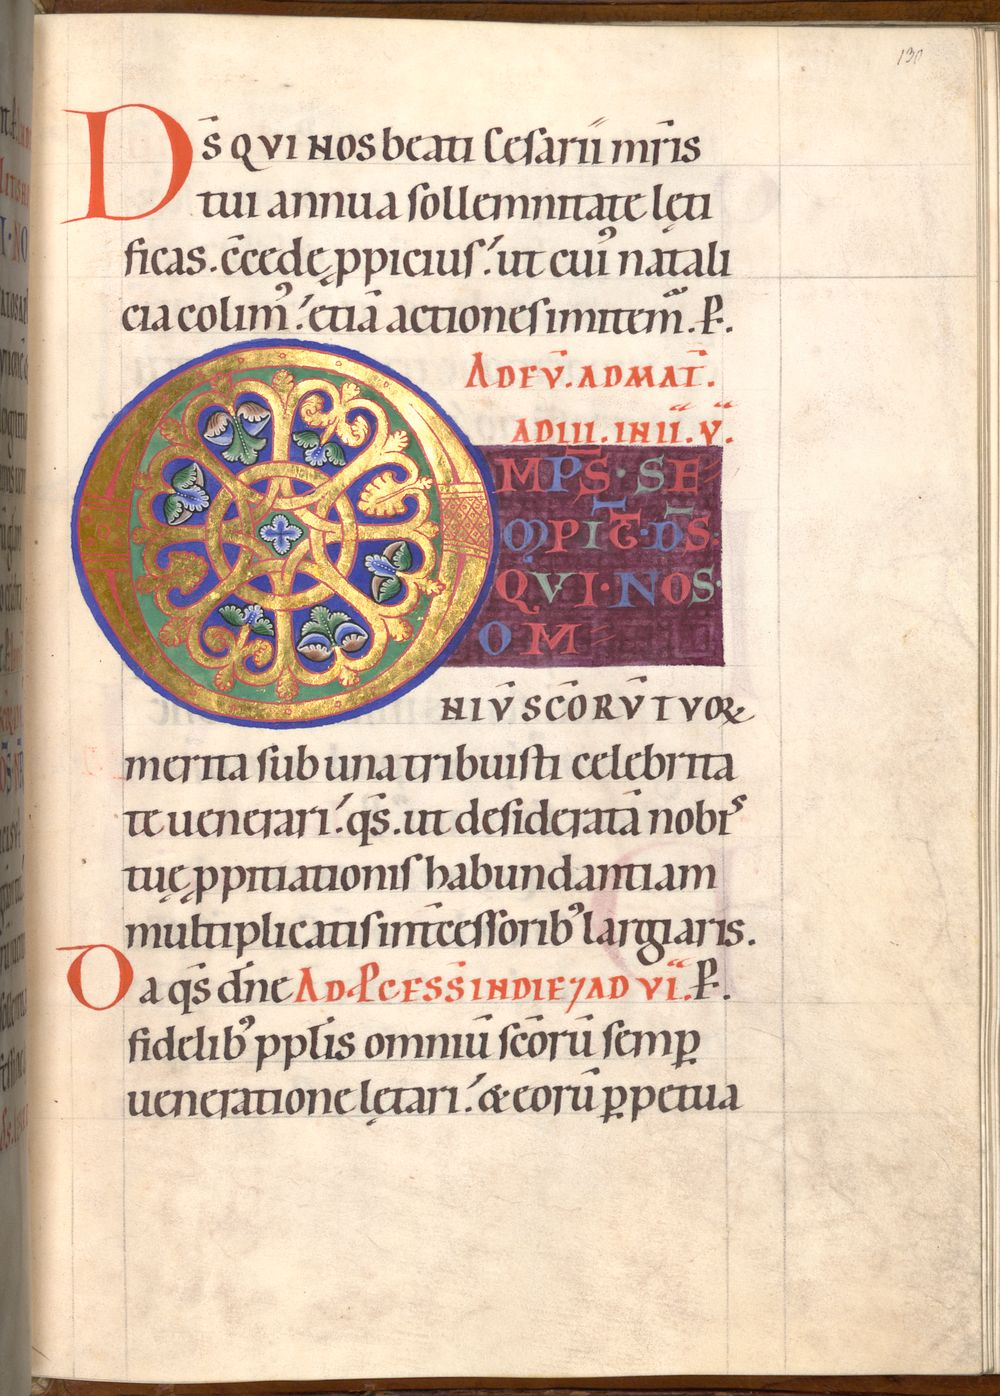 130
Ds̄ QVI NOS beati Cesarii mr̄is
tui annua sollemnitate lęti
ficas. c̄cede ꝓpicius! ut cuiꝰ natali
cia colimꝰ! etiā actiones imitemͣ. P̄.
AD EV̄. AD MAT̄.
AD III. IN II. V̄.
OMPS̄ · SE
MPIT̄ · DN̄S ·
QVI · NOS ·
OM
NIV̄ SC̄ORV̄ TVOꝜ
merita sub una tribuisti celebrita
te uenerari! qs̄. ut desideratā nobis
tuę ꝓpitiationis habundantiam
multiplicatis int̄cessoribꝰ largiaris.
Da qs̄ dn̄e AD PCESS̄ IN DIE ⁊ AD VI. P̄.
fidelibꝰ pplīs omniū sc̄orū semꝑ
ueneratione lętari! & eorū ꝑpetua